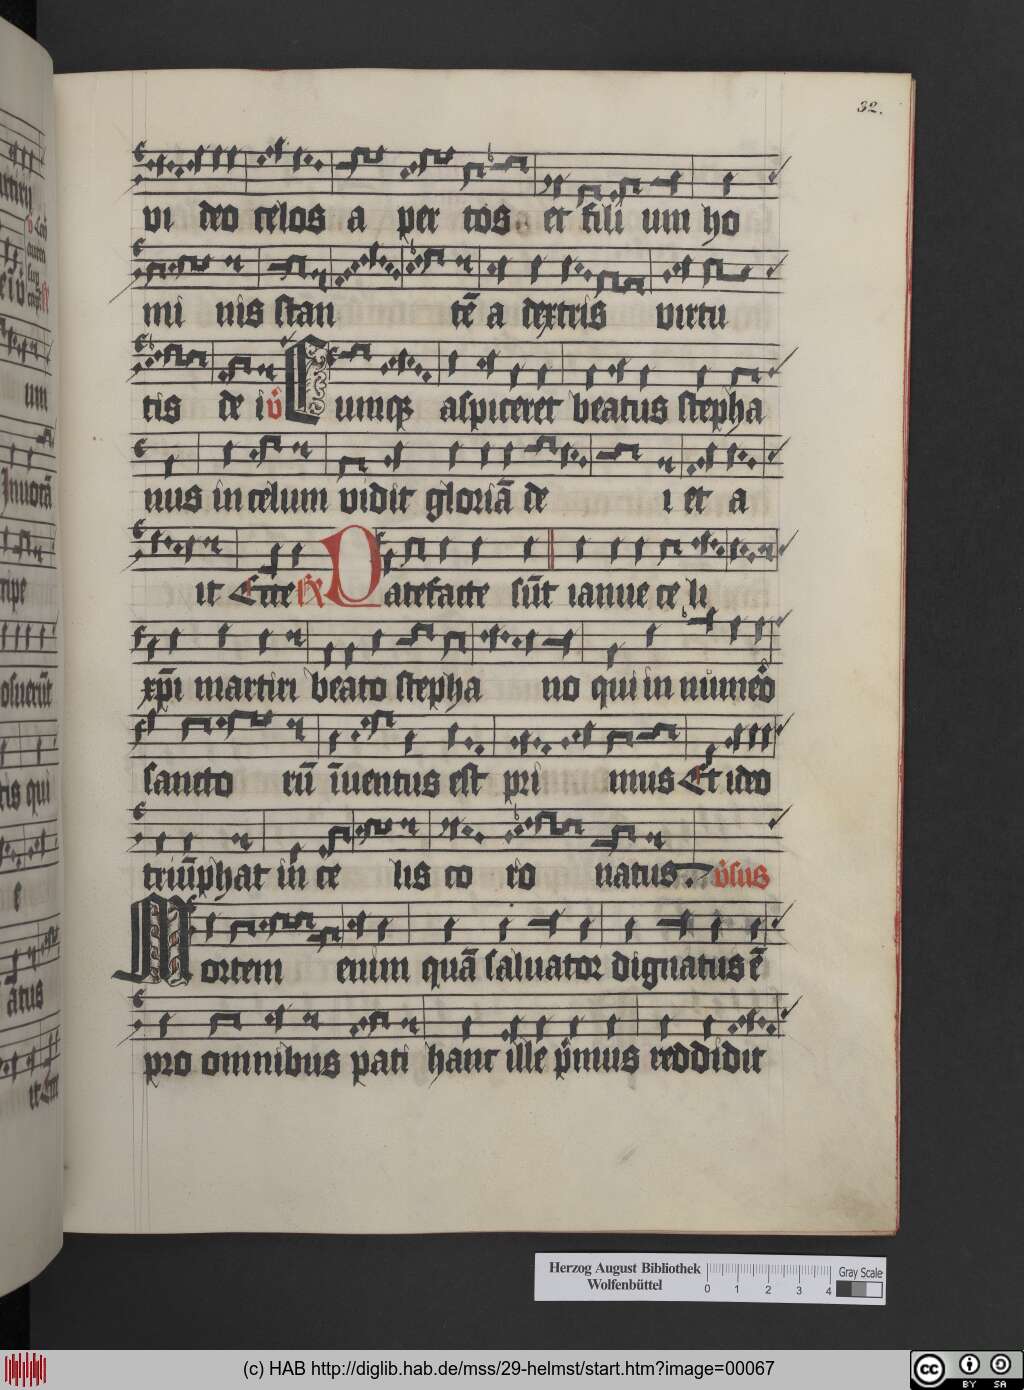 32.
vi deo celos a per tos. et fili um ho
mi nis stan tē a dextris virtu
tis de i v̄ Cumq aspiceret beatus stepha
nus in celum vidit gloriā de i et a
it Ecce R Patefacte sūt ianue ce li
xp̄i martiri beato stepha no qui in numeo
sancto rū īuentus est pri mus Et ideo
triūphat in ce lis co ro natus. v̄sus
Mortem enim quā saluator dignatus ē
pro omnibus pati hanc ille p̄mus reddidit
um
Inuocā
ripe
osuerūt
tis qui
e
ātus
Herzog August Bibliothek
Wolfenbüttel
0 1 2 3 4
Gray Scale
(c) HAB http://diglib.hab.de/mss/29-helmst/start.htm?image=00067
cc BY SA